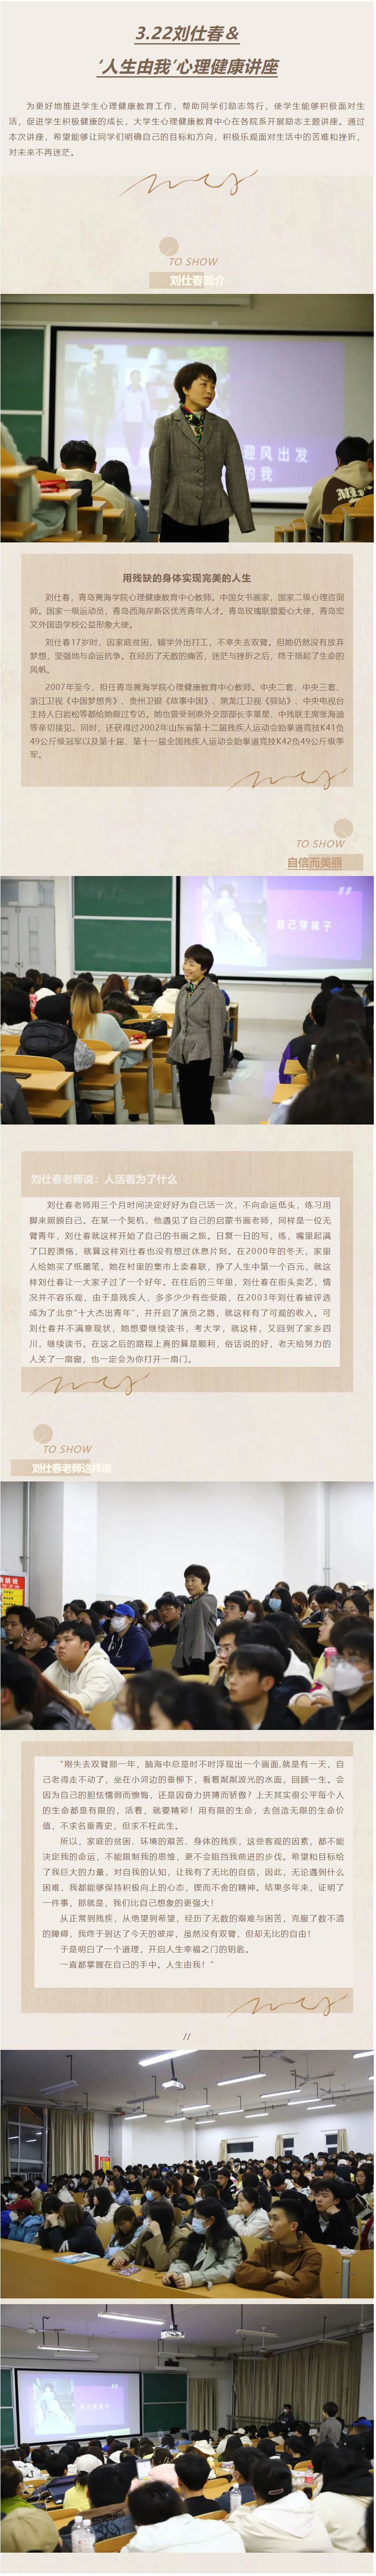 3.22刘仕春&
‘人生由我’心理健康讲座
为更好地推进学生心理健康教育工作，帮助同学们励志笃行，使学生能够积极面对生
活，促进学生积极健康的成长，大学生心理健康教育中心在各院系开展励志主题讲座。通过
本次讲座，希望能够让同学们明确自己的目标和方向，积极乐观面对生活中的苦难和挫折，
对未来不再迷茫。
TO SHOW
刘仕春简介
迎风出发
的我
用残缺的身体实现完美的人生
刘仕春，青岛黄海学院心理健康教育中心教师。中国女书画家，国家二级心理咨询
师。国家一级运动员，青岛西海岸新区优秀青年人才。青岛玫瑰联盟爱心大使，青岛宏
文外国语学校公益形象大使。
刘仕春17岁时，因家庭贫困，辍学外出打工，不幸失去双臂。但她仍然没有放弃
梦想，坚强地与命运抗争。在经历了无数的痛苦，迷茫与挫折之后，终于扬起了生命的
风帆。
2007年至今，担任青岛黄海学院心理健康教育中心教师。中央二套、中央三套、
浙江卫视《中国梦想秀》、贵州卫银《故事中国》、黑龙江卫视《驿站》、中央电视台
主持人白岩松等都给她做过专访。她也曾受到原外交部部长李肇星、中残联主席张海迪
等亲切接见。同时，还获得过2002年山东省第十二届残疾人运动会跆拳道竞技K41负
49公斤级冠军以及第十届、第十一届全国残疾人运动会跆拳道竞技K42负49公斤级季
军。
TO SHOW
自信而美丽
自己穿袜子
刘仕春老师说：人活着为了什么
刘仕春老师用三个月时间决定好好为自己活一次，不向命运低头，练习用
脚来照顾自己。在某一个契机，他遇见了自己的启蒙书画老师，同样是一位无
臂青年，刘仕春就这样开始了自己的书画之旅。日复一日的写，练，嘴里起满
了口腔溃疡，就算这样刘仕春也没有想过休息片刻。在2000年的冬天，家里
人给她买了纸墨笔，她在村里的集市上卖春联，挣了人生中第一个百元，就这
样刘仕春让一大家子过了一个好年。在往后的三年里，刘仕春在街头卖艺，情
况并不容乐观，由于是残疾人，多多少少有些受限，在2003年刘仕春被评选
成为了北京“十大杰出青年”，并开启了演员之路，就这样有了可观的收入。可
刘仕春并不满意现状，她想要继续读书，考大学，就这样，又回到了家乡四
川，继续读书。在这之后的路程上真的算是顺利，俗话说的好，老天给努力的
人关了一扇窗，也一定会为你打开一扇门。
TO SHOW
刘仕春老师这样说
“刚失去双臂那一年，脑海中总是时不时浮现出一个画面,就是有一天，自
己老得走不动了，坐在小河边的垂柳下，看着粼粼波光的水面，回顾一生。会
因为自己的胆怯懦弱而懊悔，还是因奋力拼搏而骄傲？上天其实很公平每个人
的生命都是有限的，活着，就要精彩！用有限的生命，去创造无限的生命价
值，不求名垂青史，但求不枉此生。
所以，家庭的贫困、环境的艰苦、身体的残疾，这些客观的因素，都不能
决定我的命运，不能限制我的思维，更不会阻挡我前进的步伐。希望和目标给
了我巨大的力量，对自我的认知，让我有了无比的自信，因此，无论遇到什么
困难，我都能够保持积极向上的心态，锲而不舍的精神。结果多年来，证明了
一件事，那就是，我们比自己想象的更强大！
从正常到残疾，从绝望到希望，经历了无数的艰难与困苦，克服了数不清
的障碍，我终于到达了今天的彼岸，虽然没有双臂，但却无比的自由！
于是明白了一个道理，开启人生幸福之门的钥匙。
一直都掌握在自己的手中。人生由我！”
//
自己穿袜子